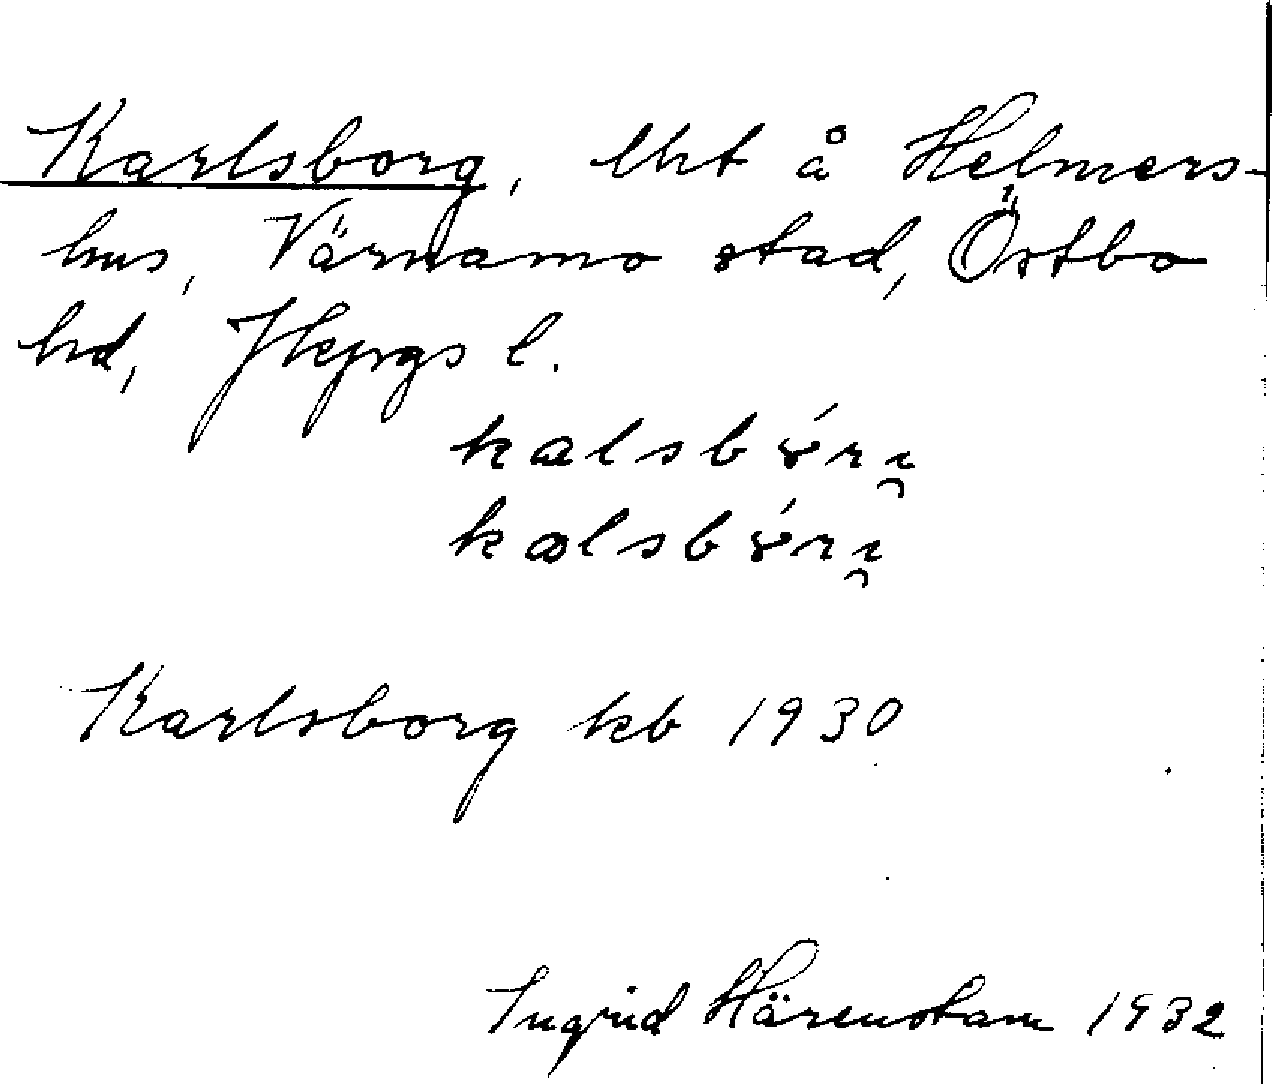 Karlsborg, lht å Helmers-
hus, Värnamo stad, Östbo
hd, Jkpgs l.
kalsbɤ́rɪ̯
kɑlsbɤ́rɪ̯
Karlsborg kb 1930
Ingrid Härenstam 1932